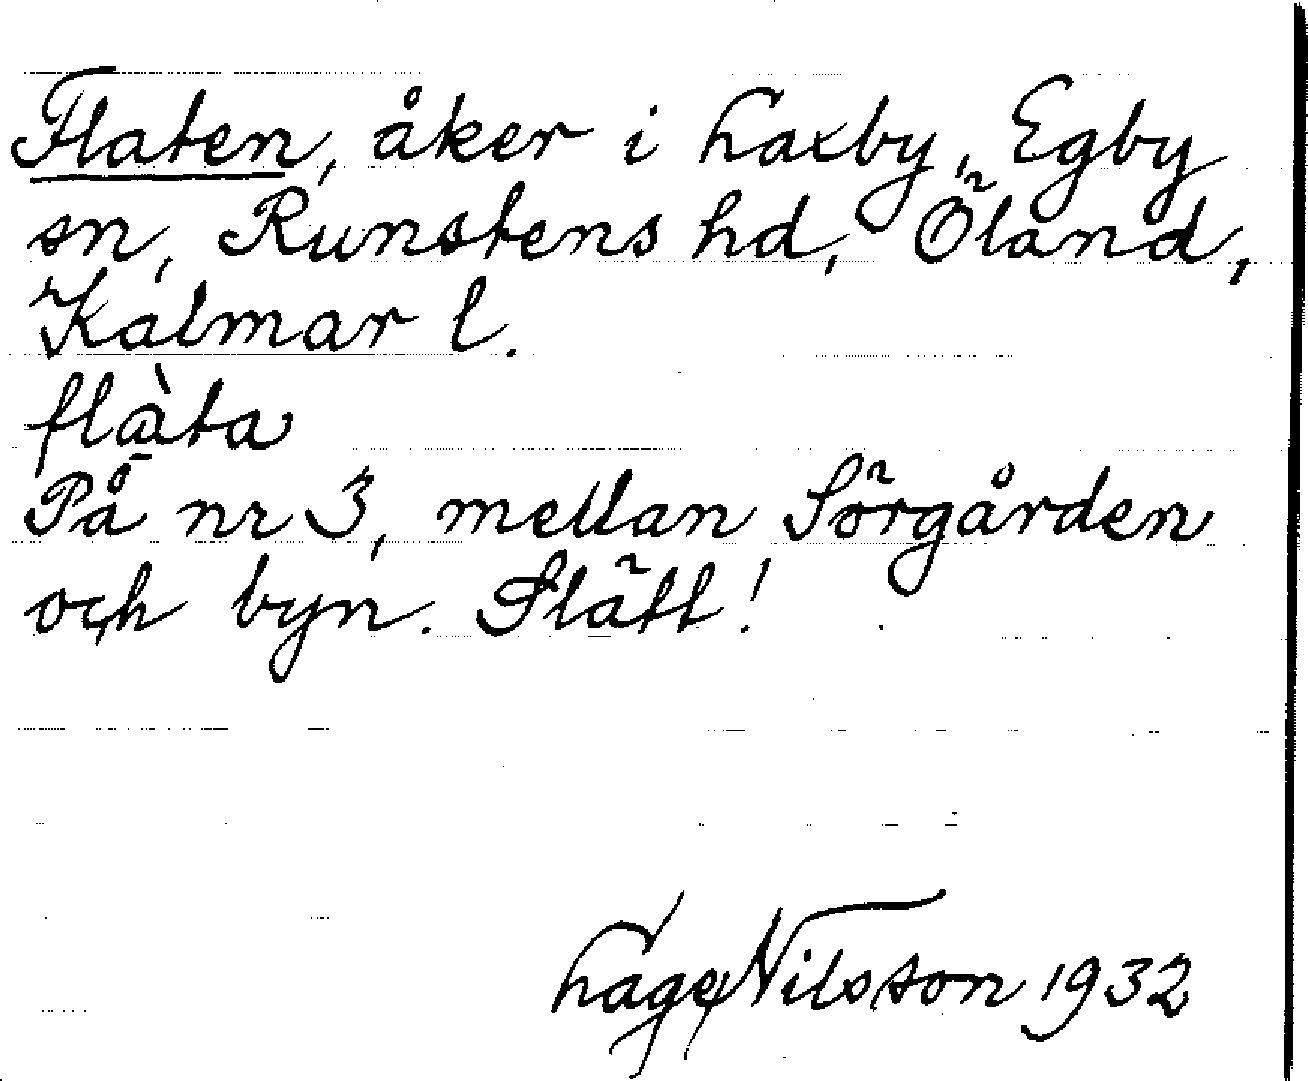 Flaten, åker i Laxby, Egby
sn, Runstens hd, Öland,
Kalmar l.
flàta
På nr 3, mellan Sörgården
och byn. Slätt!
Lage Nilsson 1932